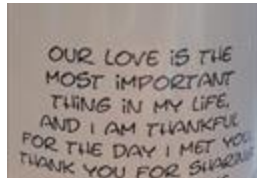 OUR LOVE iS THE
MOST iMPORTANT
THiNG iN MY LiFE,
AND I AM THANKFUL
FOR THE DAY I MET YOU
THANK YOU FOR SHARING